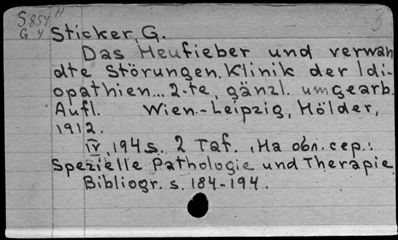 S854H
G4 Sticker, G.
Das Heufieber und verwan
dte Störungen, Klinik der Idi-
opathien... 2-te, gänzl. umgearb.
Aufl. Wien.-Leipzig, Hölder,
1912.
IV, 194 s. 2 Taf. , На обл. сер.:
Spezielle Pathologie und Therapie
Bibliogr. s. 184-194.